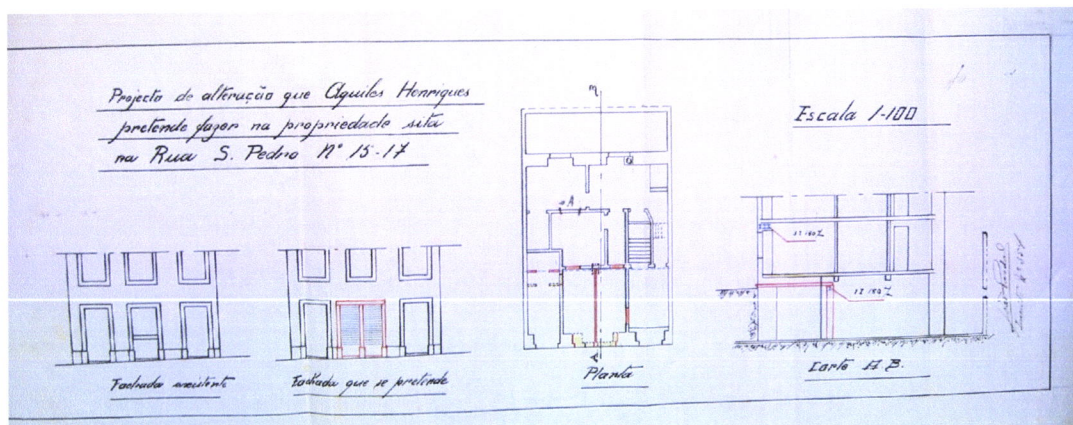 Projecto de alteração que Aquiles Henriques
pretende fazer na propriedade sita
na Rua S. Pedro Nº 15-17
Escala 1-100
M
A
Fachada existente
Fachada que se pretende
Planta
Corte A B.